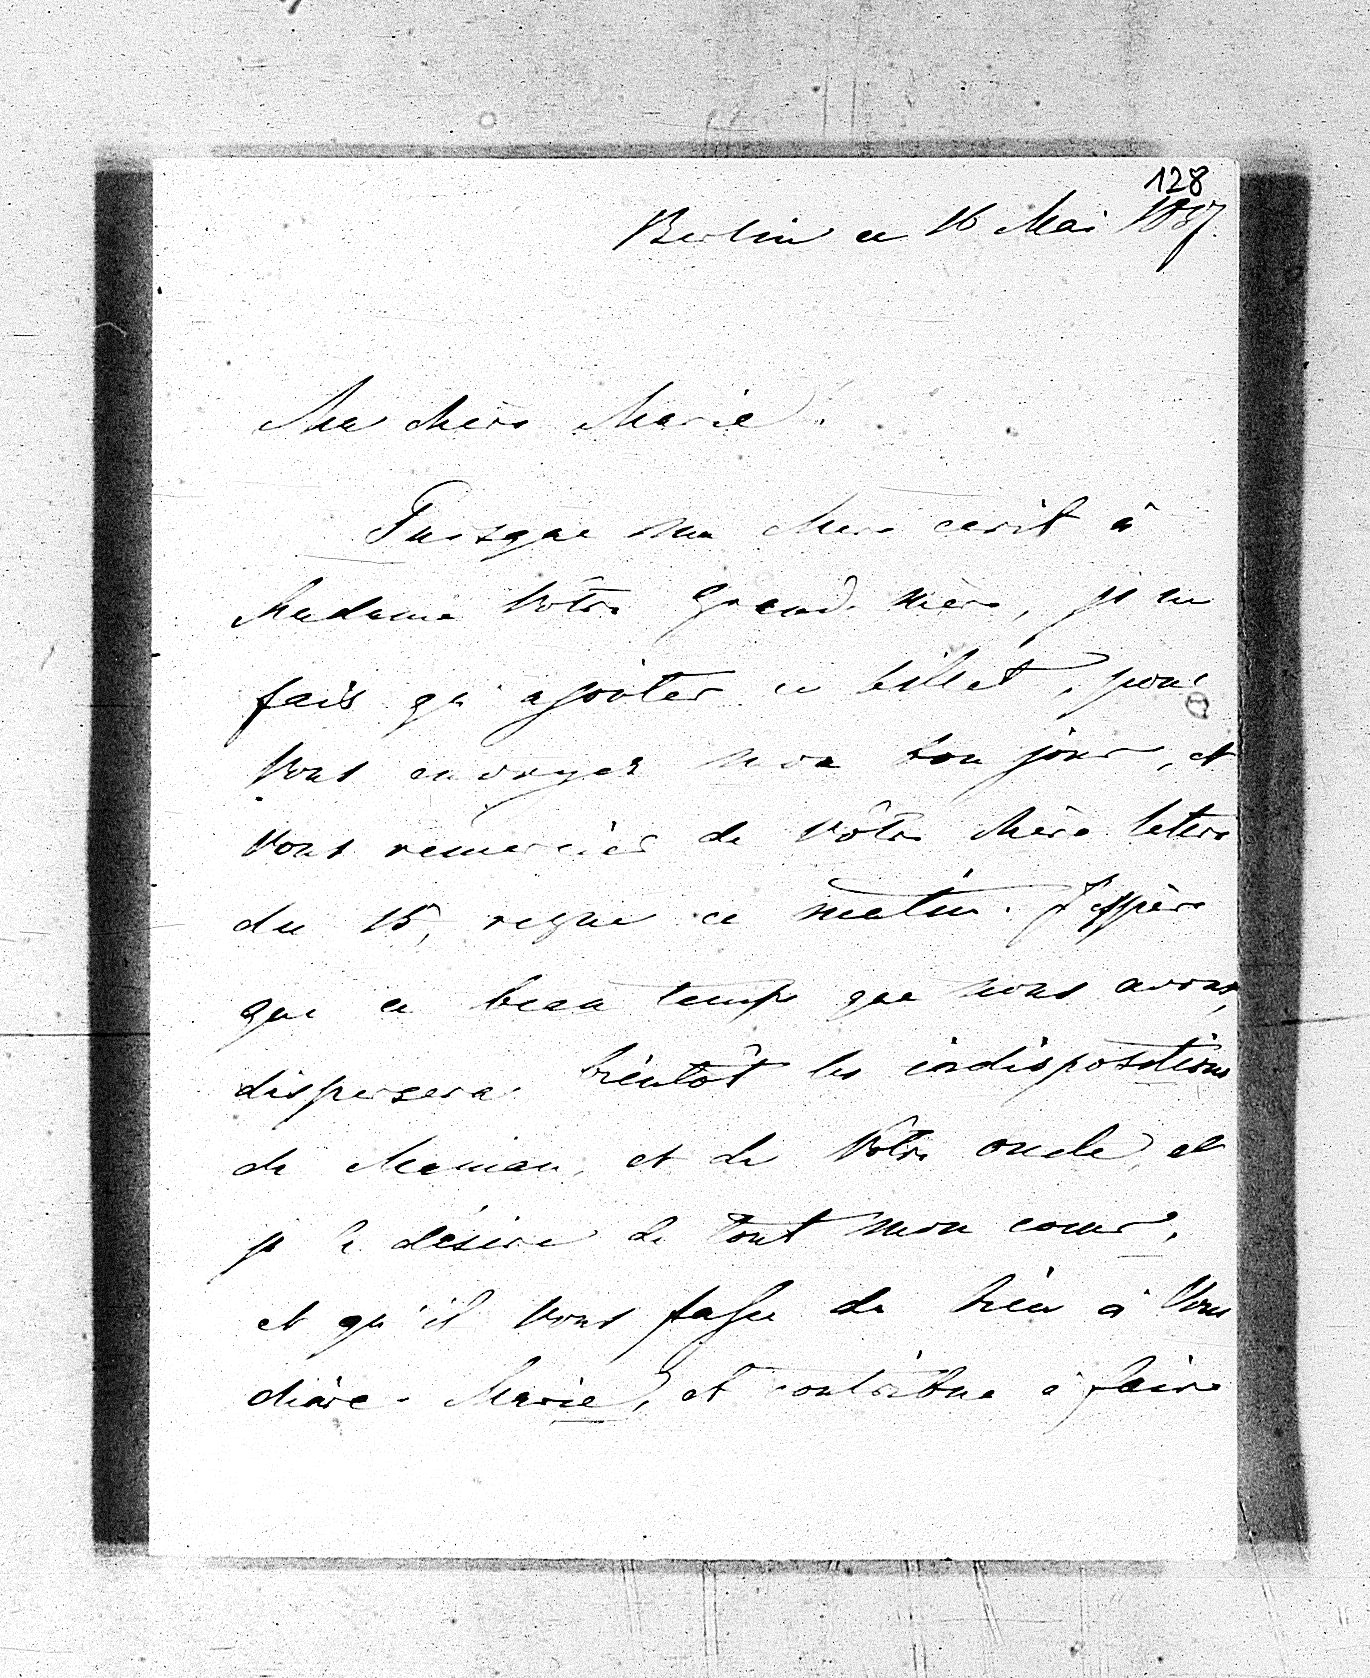 128
Berlin ce 16 Mai 1887.
Ma chère Marie.
Puisque ma chère écrit à
Madame Vôtre Grand mère, je ne
fais qu'ajouter ce billet, pour
Vous envoyer mon bon jour, et
Vous remercier de Vôtre chère lettre
du 15, reçue ce matin. J'espère
que ce beau temps que nous avons,
dispersera bientôt les indispositions
de Maman, et de Vôtre oncle, et
je le désire de tout mon coeur,
et qu'il Vous fasse du bien à Vous
chère Marie, et contribue à faire